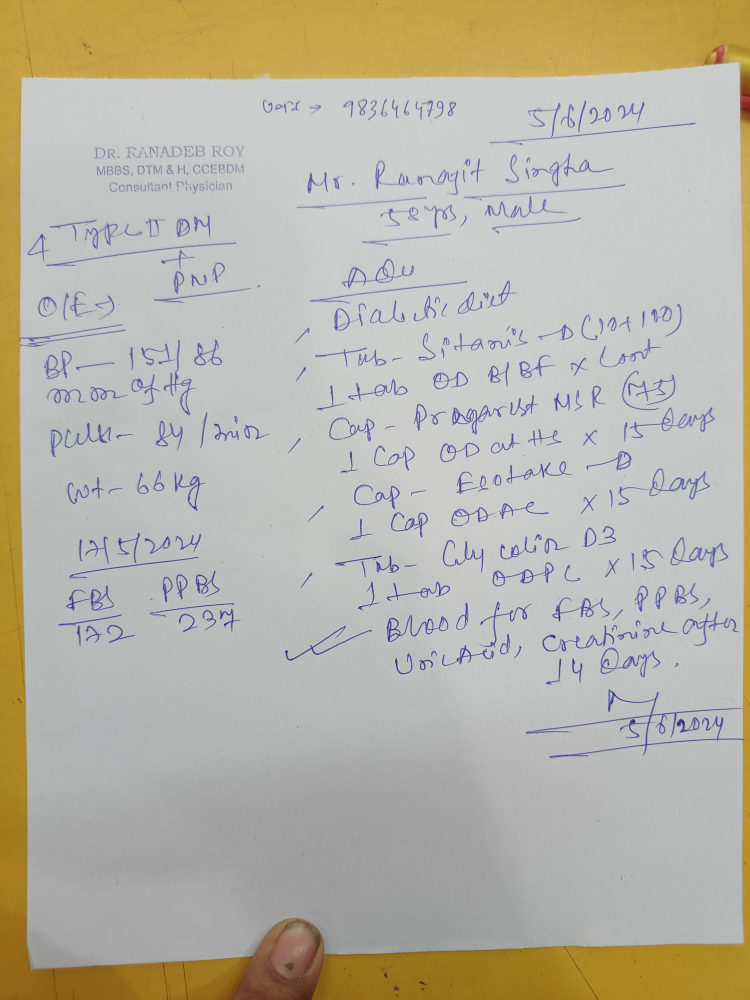 9836464798
5/6/2024
DR. RANADEB ROY
MBBS, DTM & H, CCEBDM
Consultant Physician
Mr. Ranajit Singha
58 yrs, Male
Type II DM
+
PNP
O/E →
BP — 151/86
mm of Hg
Pulse - 84 /min
wt - 66 kg
17/5/2024
FBS PPBS
172 237
Adv
Diabetic diet
Tab - Sitanis - D (10+100)
1 tab OD B/BF x Cont
Cap - MSR (75)
1 Cap OD at HS x 15 Days
Cap - Esotake - D
1 Cap OD AC x 15 Days
Tab - D3
1 tab OD PC x 15 Days
Blood for FBS, PPBS,
Uric Acid, Creatinine after
14 Days.
5/6/2024